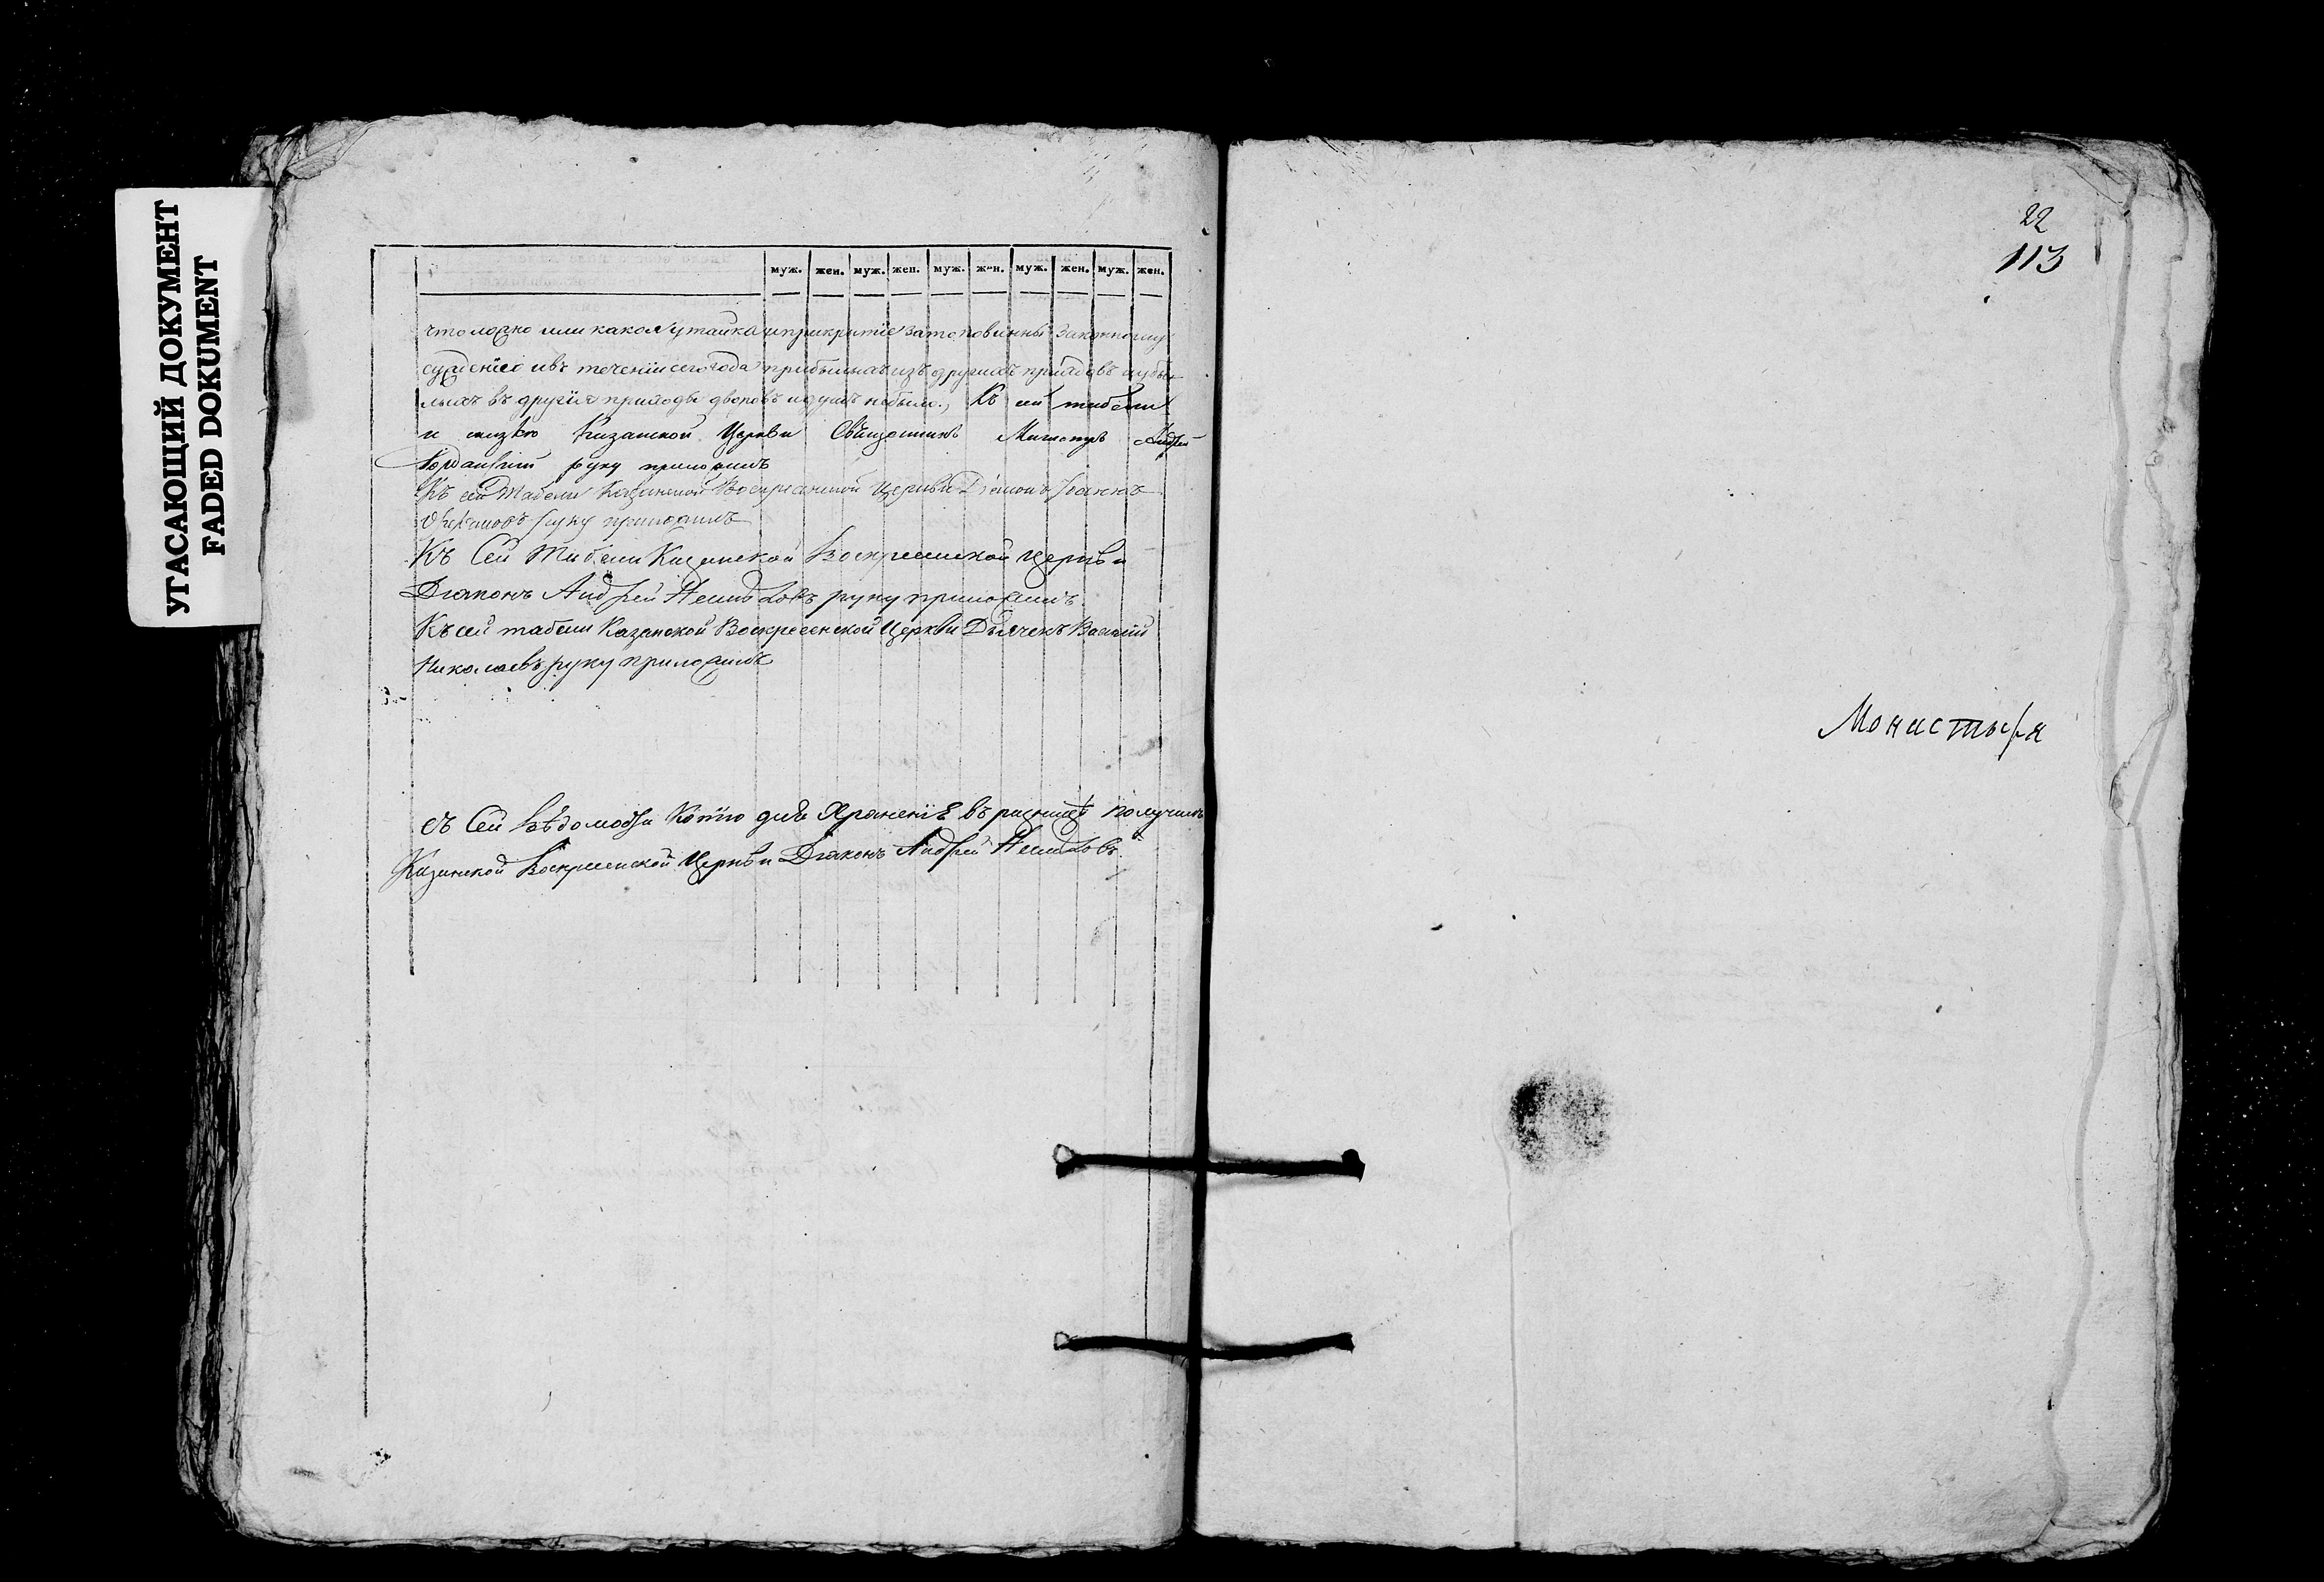 УГАСАЮЩИЙ ДОКУМЕНТ
FADED DOKUMENT
муж. жен. муж. жен. муж. жен. муж. жен. муж. жен.
что ложно или какая утайка и прикрытіе за то повинны законному
сужденію и въ теченіи сего года прибылыхъ изъ другихъ приходовъ и убы
лыхъ въ другіе приходы дворовъ и душъ не было. Къ сей табели
и Казанской Церкви Священникъ Магистръ Андрей
руку приложилъ
Къ сей Табели Казанской Воскресенской Церкви Діаконъ Іоаннъ
руку приложилъ
Къ Сей Табели Казанской Воскресенской Церкви
Діяконъ Андрей руку приложилъ.
Къ сей табели Казанской Воскресенской Церкви Дьячекъ Василій
Николаевъ руку приложилъ
съ Сей Вѣдомости Копію для Храненіе въ ризницѣ получилъ
Казанской Воскресенской Церкви Діяконъ Андрей
22
113
Монастыря